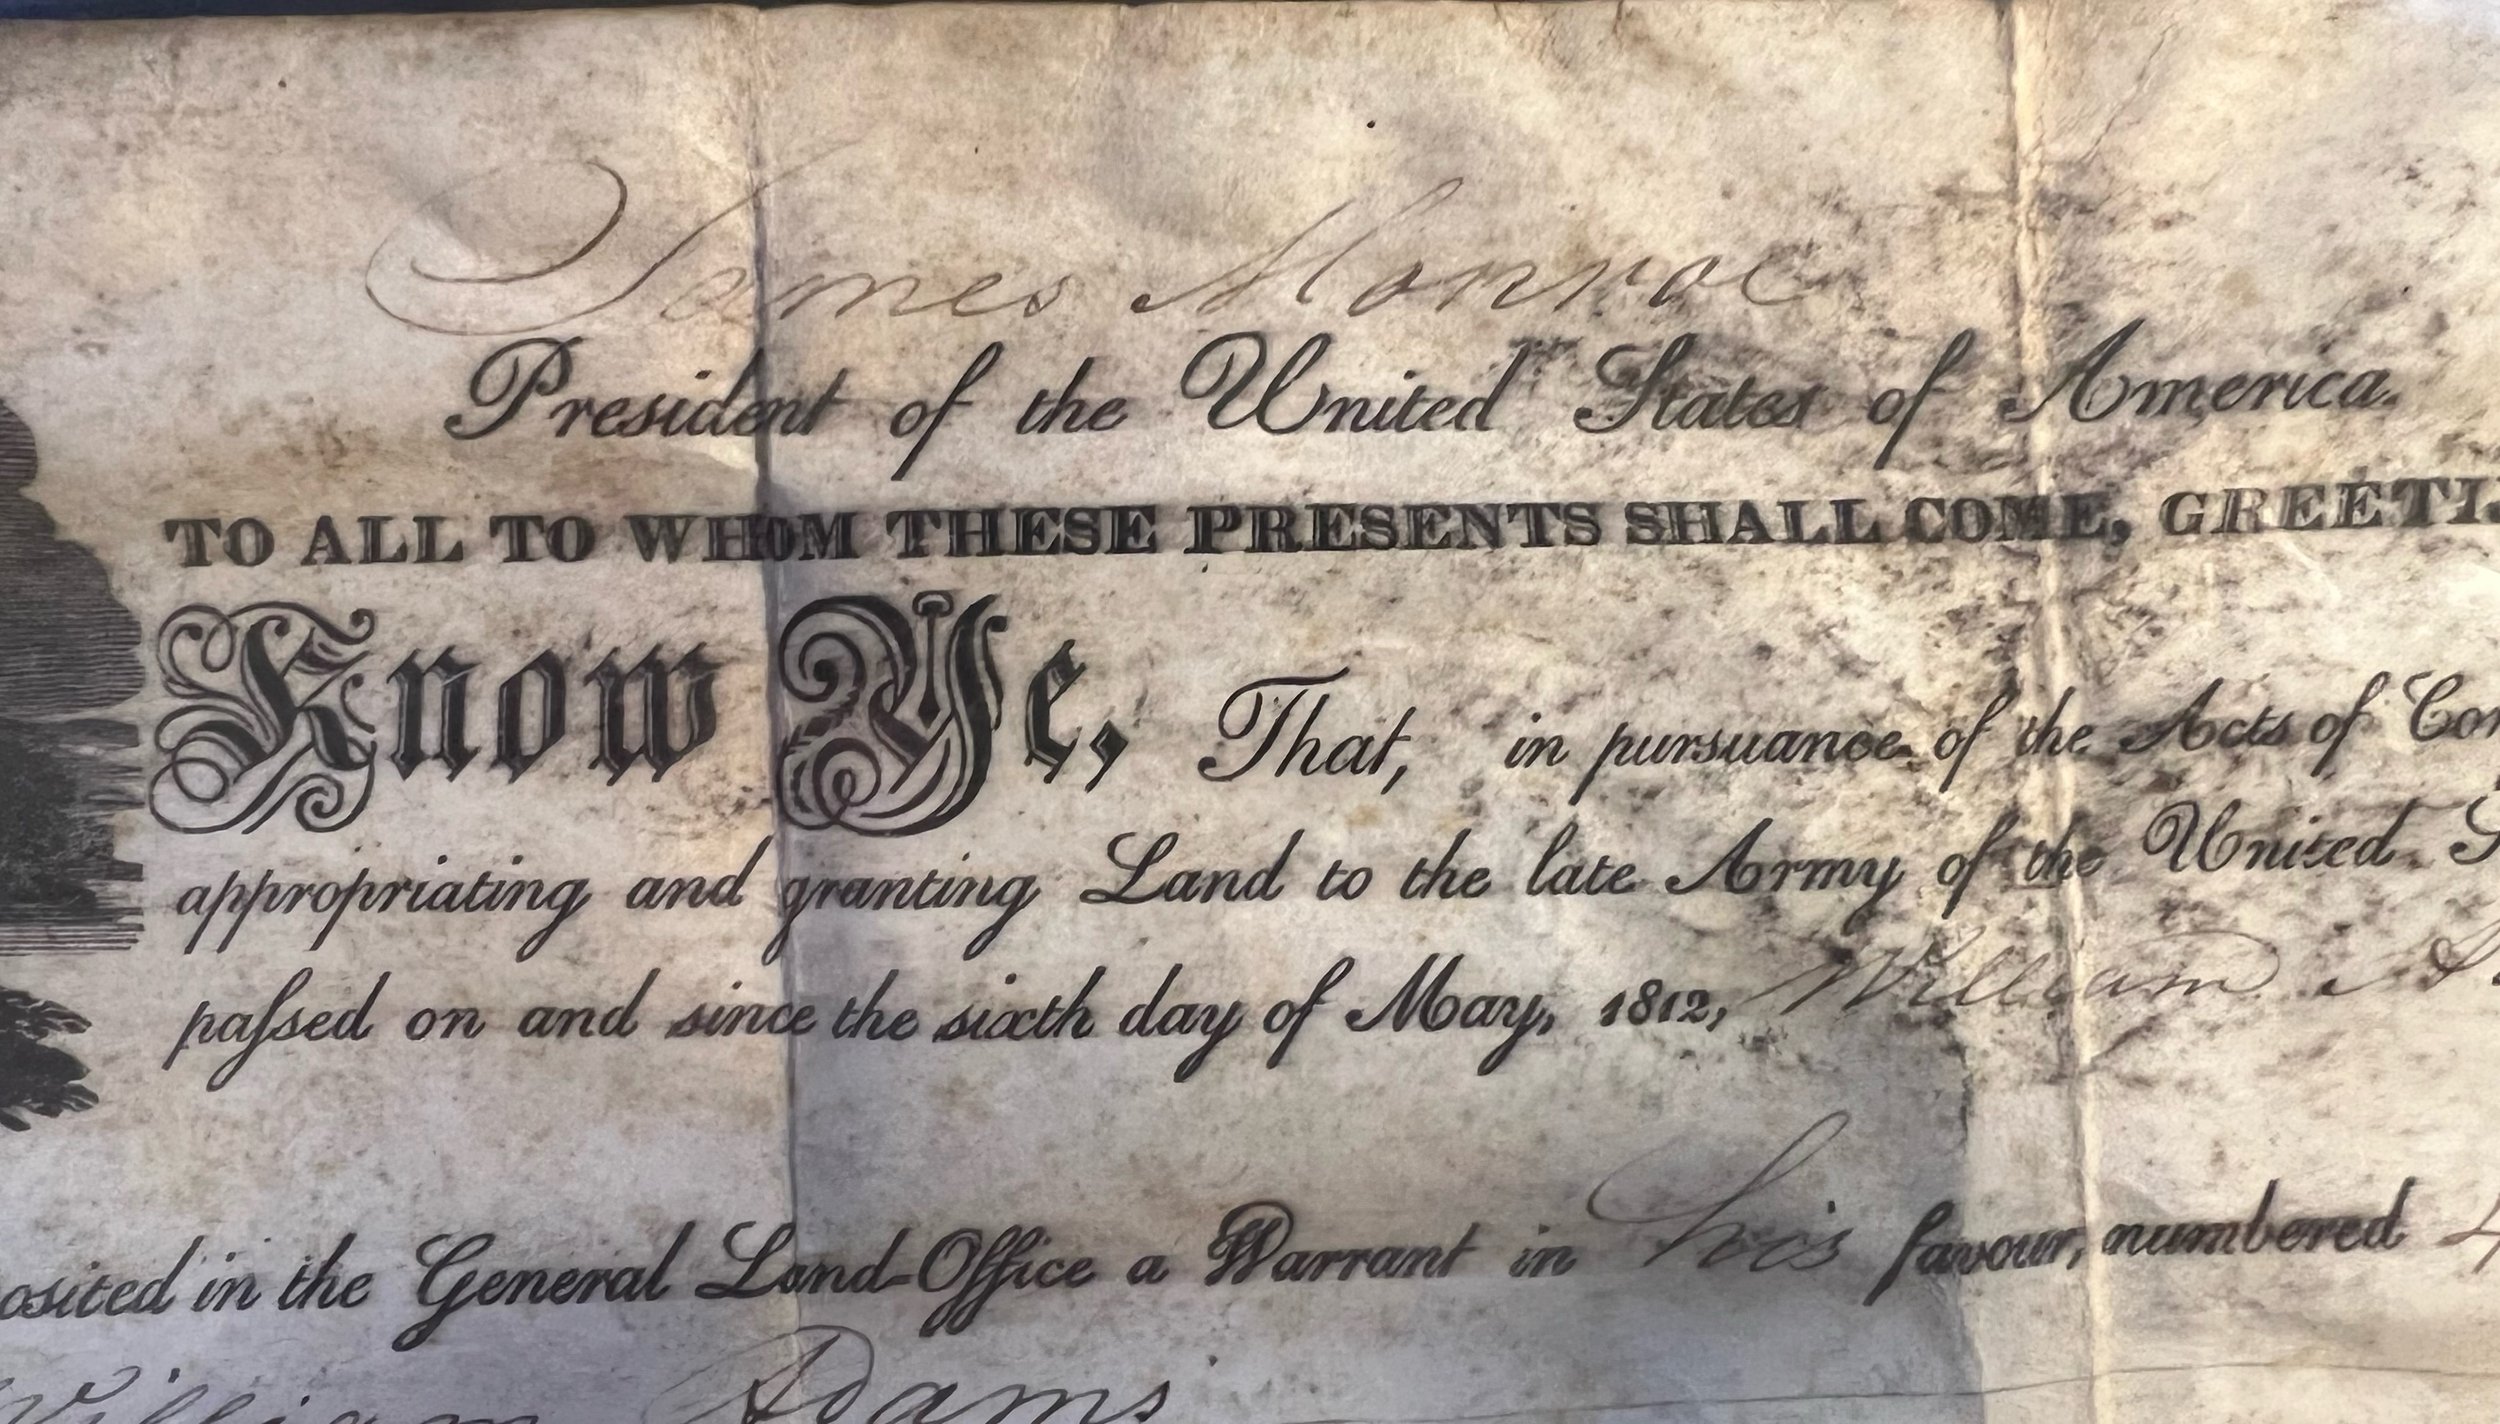 James Monroe
President of the United States of America.
TO ALL TO WHOM THESE PRESENTS SHALL COME, GREETI
Know Ye, That, in pursuance of the Acts of Con
appropriating and granting Land to the late Army of the United S
paſsed on and since the sixth day of May, 1812, William A
osited in the General Land-Office a Warrant in his favour, numbered 4
William Adams